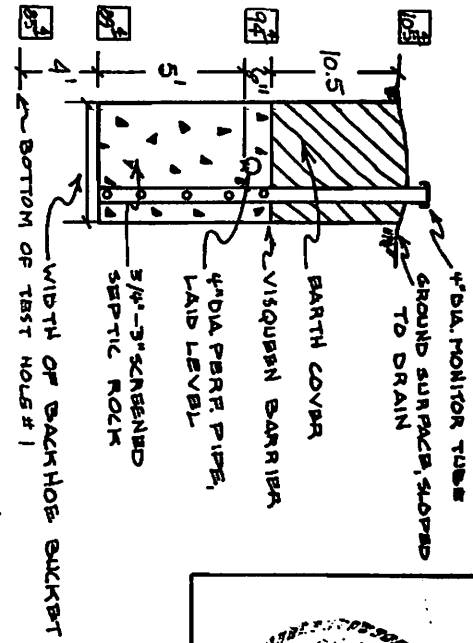 4" DIA. MONITOR TUBE
GROUND SURFACE, SLOPED
TO DRAIN
EARTH COVER
VISQUEEN BARRIER
4" DIA. PERF. PIPE,
LAID LEVEL
3/4"-3" SCREENED
SEPTIC ROCK
WIDTH OF BACKHOE BUCKET
BOTTOM OF TEST HOLE # 1
10.5
6"
5'
4'
±105
±94
±89
±85